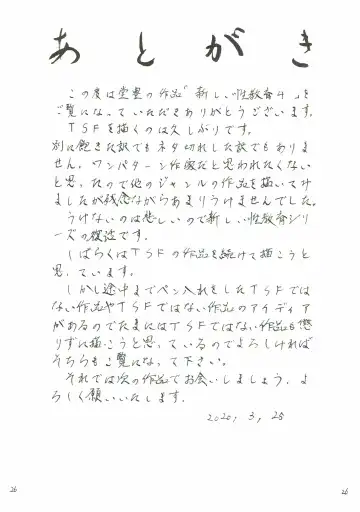 あとがき
この度は堂豊の作品「新しい性教育4」を
ご覧になっていただきありがとうございます。
TSFを描くのは久しぶりです。
別に飽きた訳でもネタ切れした訳でもありま
せん。ワンパターン作家だと思われたくない
と思ったので他のジャンルの作品を描いてみ
ましたが残念ながらあまりうけませんでした。
うけないのは悲しいので新しい性教育シリ
ーズの復活です。
しばらくはTSFの作品を続けて描こうと
思っています。
しかし途中までペン入れをしたTSFでは
ない作品やTSFではない作品のアイディア
があるのでたまにはTSFではない作品も懲
りずに描こうと思っているのでよろしければ
そちらもご覧になって下さい。
それでは次の作品でお会いしましょう。よ
ろしく願いいたします。
2020, 3, 28
26
26